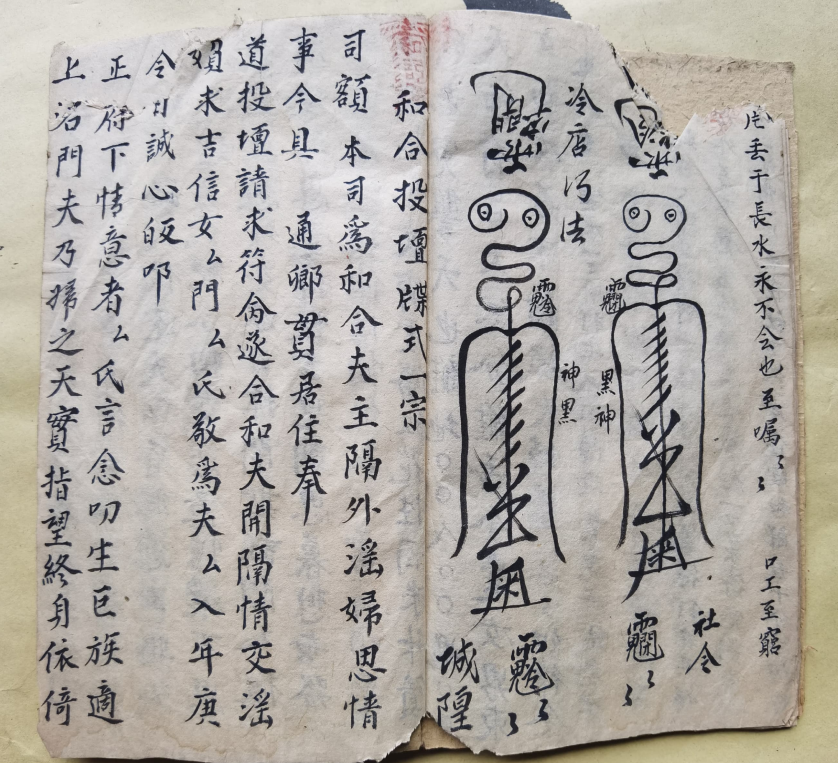 于長水永不会也至嘱
口工至窮
社令
黑神
冷店
神黑
城隍
和合投壇牒式一宗
司額 本司爲和合夫主隔外滛婦恩情
事今具 通鄉貫居住奉
道投壇請求符 遂合和夫開隔情交滛
求吉信女厶門厶氏敬爲夫厶入年庚
令 誠心 叩
正 下情意者厶氏言念叨生巨族適
上 門夫乃婦之天實指望終身依倚